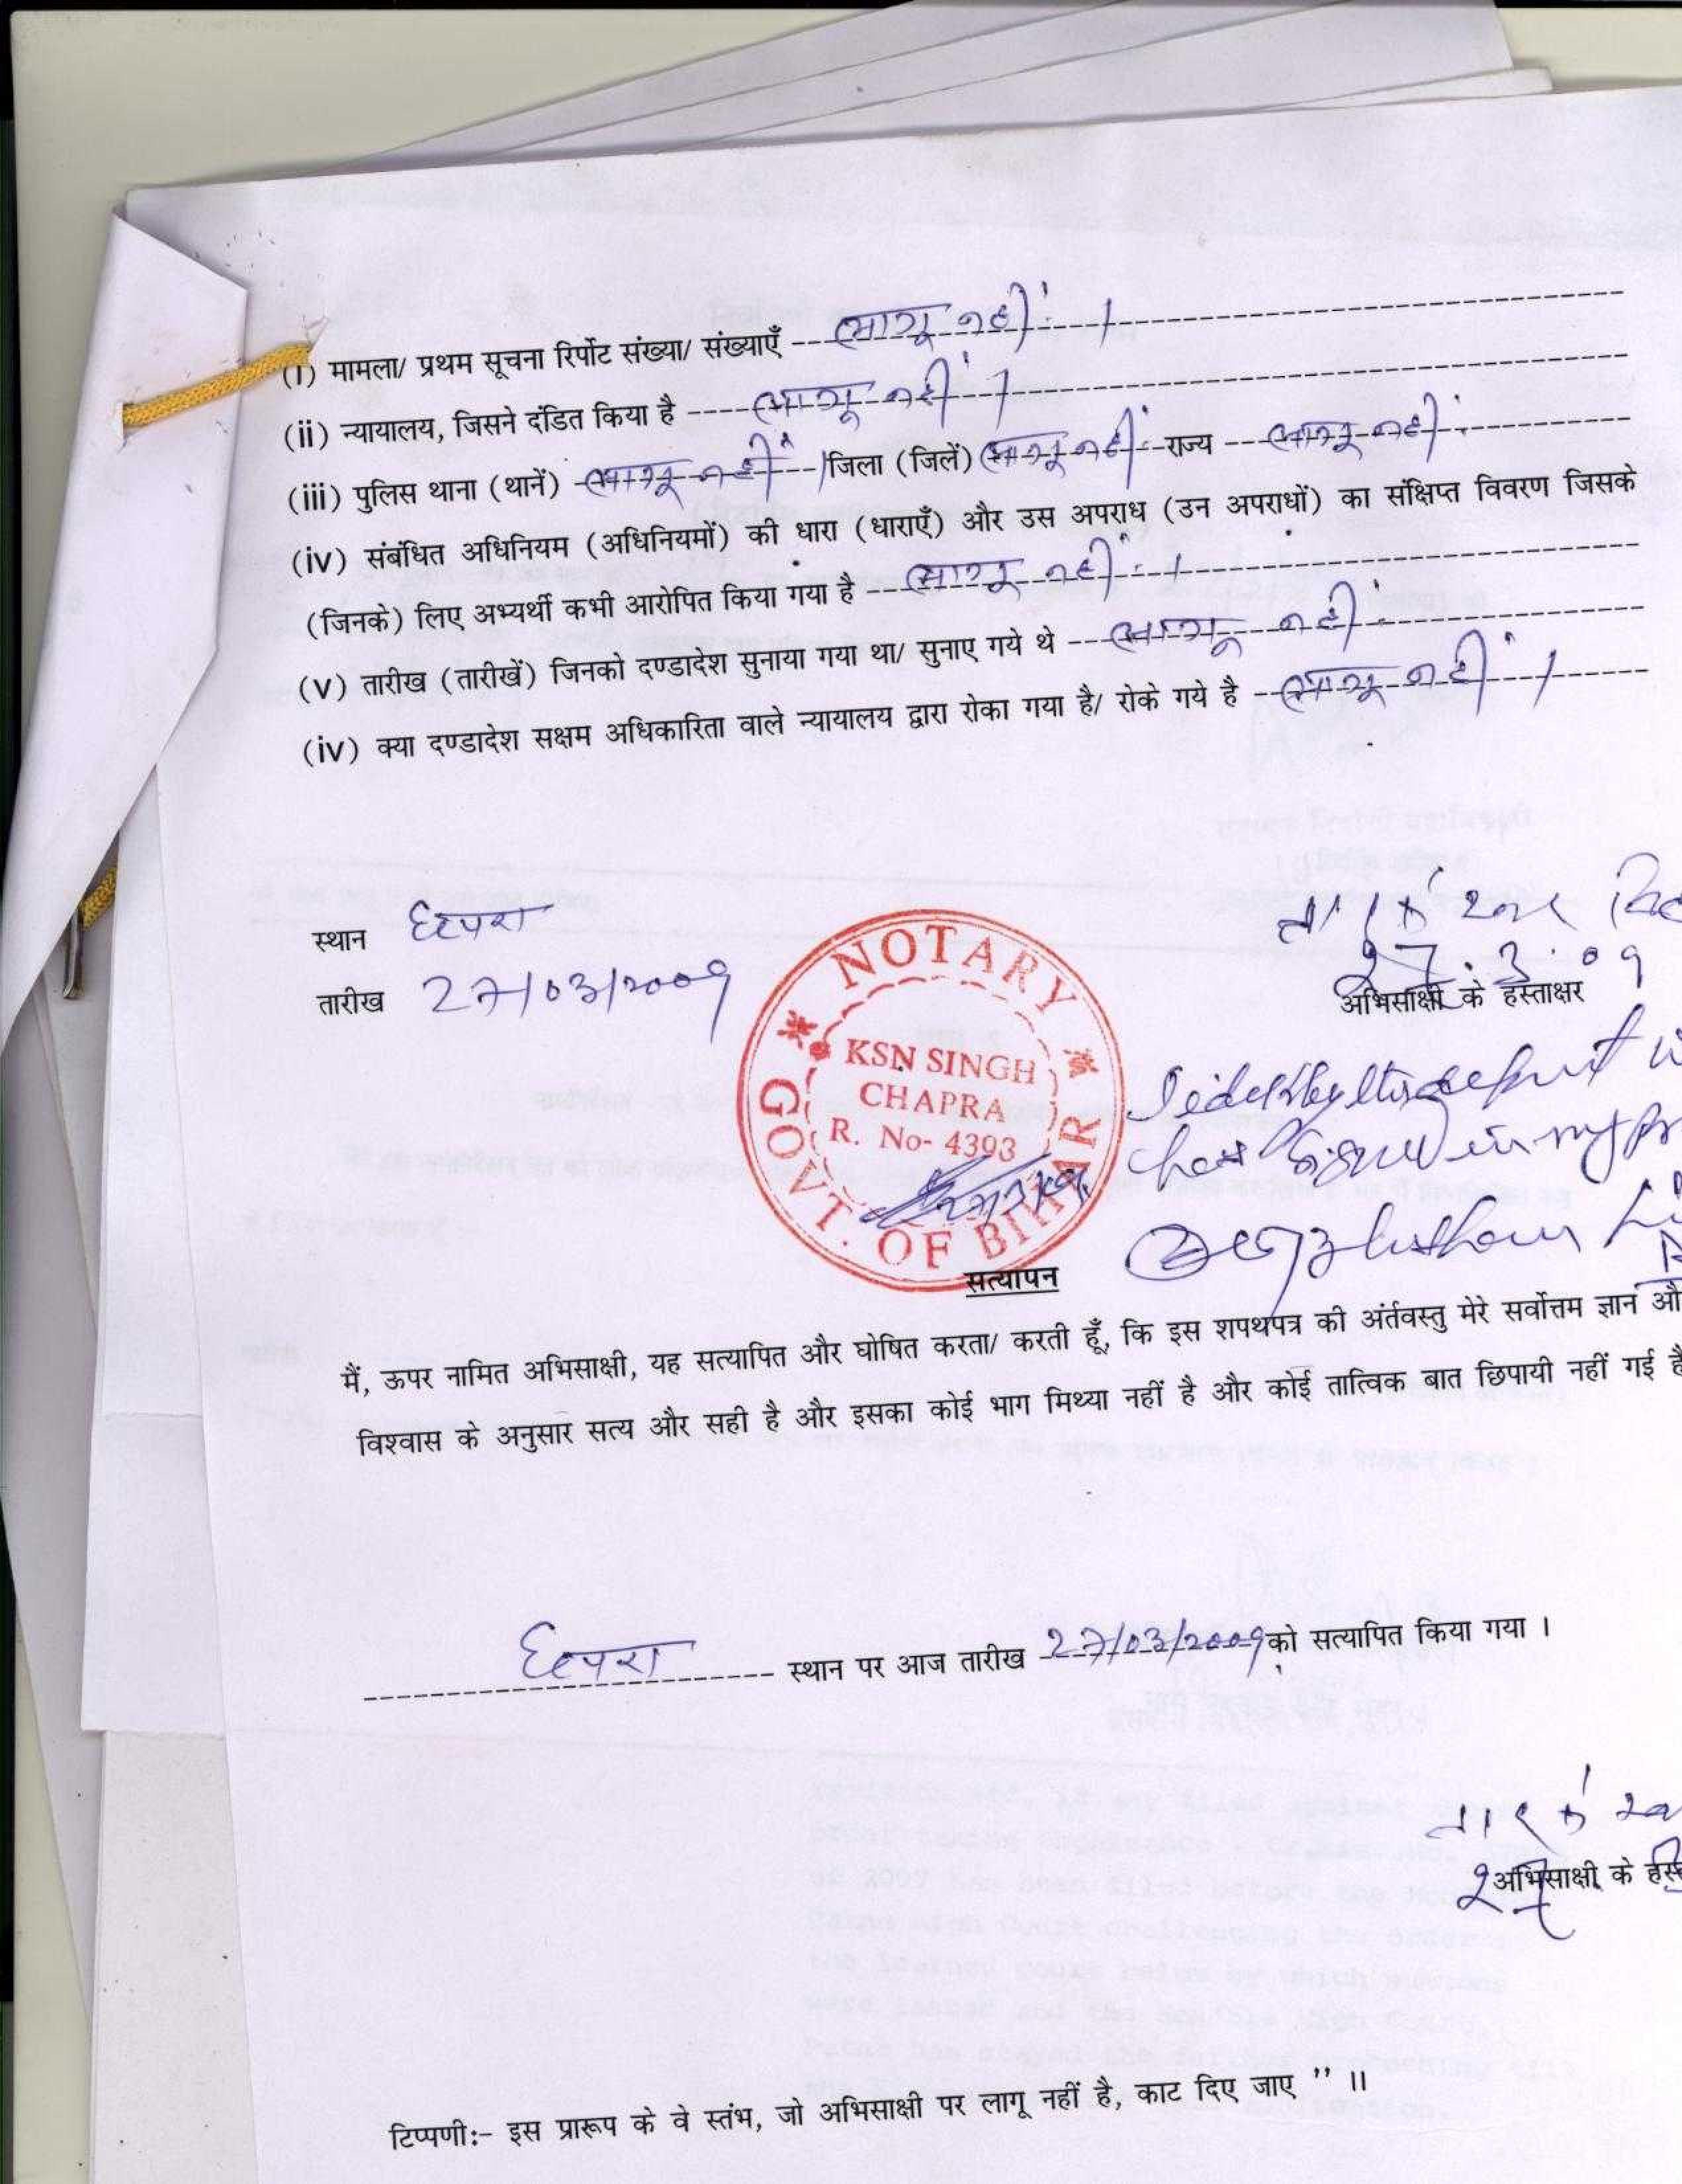 (i) मामला/ प्रथम सूचना रिर्पोट संख्या/ संख्याएँ --- लागू नहीं ।
(ii) न्यायालय, जिसने दंडित किया है ---- लागू नहीं ।
(iii) पुलिस थाना (थानें) - लागू नहीं --- जिला (जिलें) लागू नहीं -- राज्य --- लागू नहीं
(iv) संबंधित अधिनियम (अधिनियमों) की धारा (धाराएँ) और उस अपराध (उन अपराधों) का संक्षिप्त विवरण जिसके
(जिनके) लिए अभ्यर्थी कभी आरोपित किया गया है --- लागू नहीं ।
(v) तारीख (तारीखें) जिनको दण्डादेश सुनाया गया था/ सुनाए गये थे --- लागू नहीं
(iv) क्या दण्डादेश सक्षम अधिकारिता वाले न्यायालय द्वारा रोका गया है/ रोके गये है -- लागू नहीं ।
स्थान छपरा
तारीख 27/03/2009
27.3.09
अभिसाक्षी के हस्ताक्षर
NOTARY
KSN SINGH
CHAPRA
R. No- 4393
GOVT. OF BIHAR
in my
सत्यापन
मैं, ऊपर नामित अभिसाक्षी, यह सत्यापित और घोषित करता/ करती हूँ, कि इस शपथपत्र की अंर्तवस्तु मेरे सर्वोत्तम ज्ञान औ
विश्वास के अनुसार सत्य और सही है और इसका कोई भाग मिथ्या नहीं है और कोई तात्विक बात छिपायी नहीं गई है
छपरा ---------- स्थान पर आज तारीख 27/03/2009 को सत्यापित किया गया ।
27
अभिसाक्षी के हस्
टिप्पणी:- इस प्रारूप के वे स्तंभ, जो अभिसाक्षी पर लागू नहीं है, काट दिए जाए '' ।।